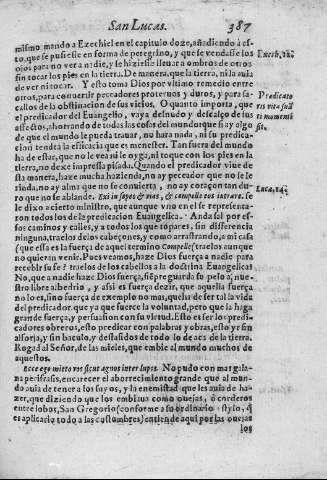 San Lucas. 387
mismo mando a Ezechiel en el capitulo doze, añadiendo à esto, que se pusiesse en forma de peregrino, y que se vendasse los
ojos para no ver a nadie, y se hiziesse lleuar a ombros de otros
sin tocar los pies en la tierra. De manera, que la tierra, ni la auia
de ver ni tocar. Y esto toma Dios por vltimo remedio entre
otros, para conuertir peccadores proteruos y duros, y para sacallos de la obstinacion de sus vicios. O quanto importa, que
el predicador del Euangelio, vaya desnudo y descalço de sus
affectos, ahorrando de todas las cosas del mundo: que si ay algo
de que el mundo le pueda trauar, no hara nada, ni su predicacion tendra la efficacia que es menester. Tan fuera del mundo
ha de estar, que no le vea ni le oyga, ni toque con los pies en la
tierra, no dexe impressa pisada. Quando el predicador viue de
sta manera, haze mucha hazienda, no ay peccador que no se le
rinda, no ay alma que no se conuierta, no ay coraçon tan duro que no se ablande. Exi in sepes & vias, & compelle eos intrare. Se
le dixo a cierto ministro, que aunque vno en el se representaron todos los de la predicacion Euangelica. Anda sal por essos caminos y calles, y a todos los que topares, sin differencia
ninguna, traelos de los cabeçones, y como arrastrando, a mi casa
(que essa es la fuerça de aquel termino Compelle) traelos aunque
no quieran venir. Pues veamos, haze Dios fuerça a nadie para
recebir su fe? traelos de los cabellos a la doctrina Euangelica?
No, que a nadie haze Dios fuerça, siempre guarda su pelo a nuestro libre albedrio, y assi es fuerça dezir, que aquella fuerça
no lo es, sino fuerça de exemplo no mas, que ha de ser tal la vida
del predicador, que ya que fuerce la voluntad, pero que la haga
grande fuerça, y persuasion con su virtud. Esto es ser los predicadores obreros, esto predicar con palabras y obras, esto yr sin
alforja, y sin baculo, y deslasidos de todo lo de aca de la tierra.
Rogad al Señor, de las mieses, que embie al mundo muchos de
aquestos.
Ecce ego mitto vos sicut agnos inter lupos. No pudo con mas galana perifrasis, encarecer el aborrecimiento grande que al mundo auia de tener a los suyos, y la enemistad que les auia de hazer, que diziendo que los embiaua como ouejas, ò corderos
entre lobos, San Gregorio (conforme a su ordinario stylo, q̃
es aplicarlo todo a las costumbres) entiende aqui por las ouejas
los
Ezech. 12.
Luca. 14.